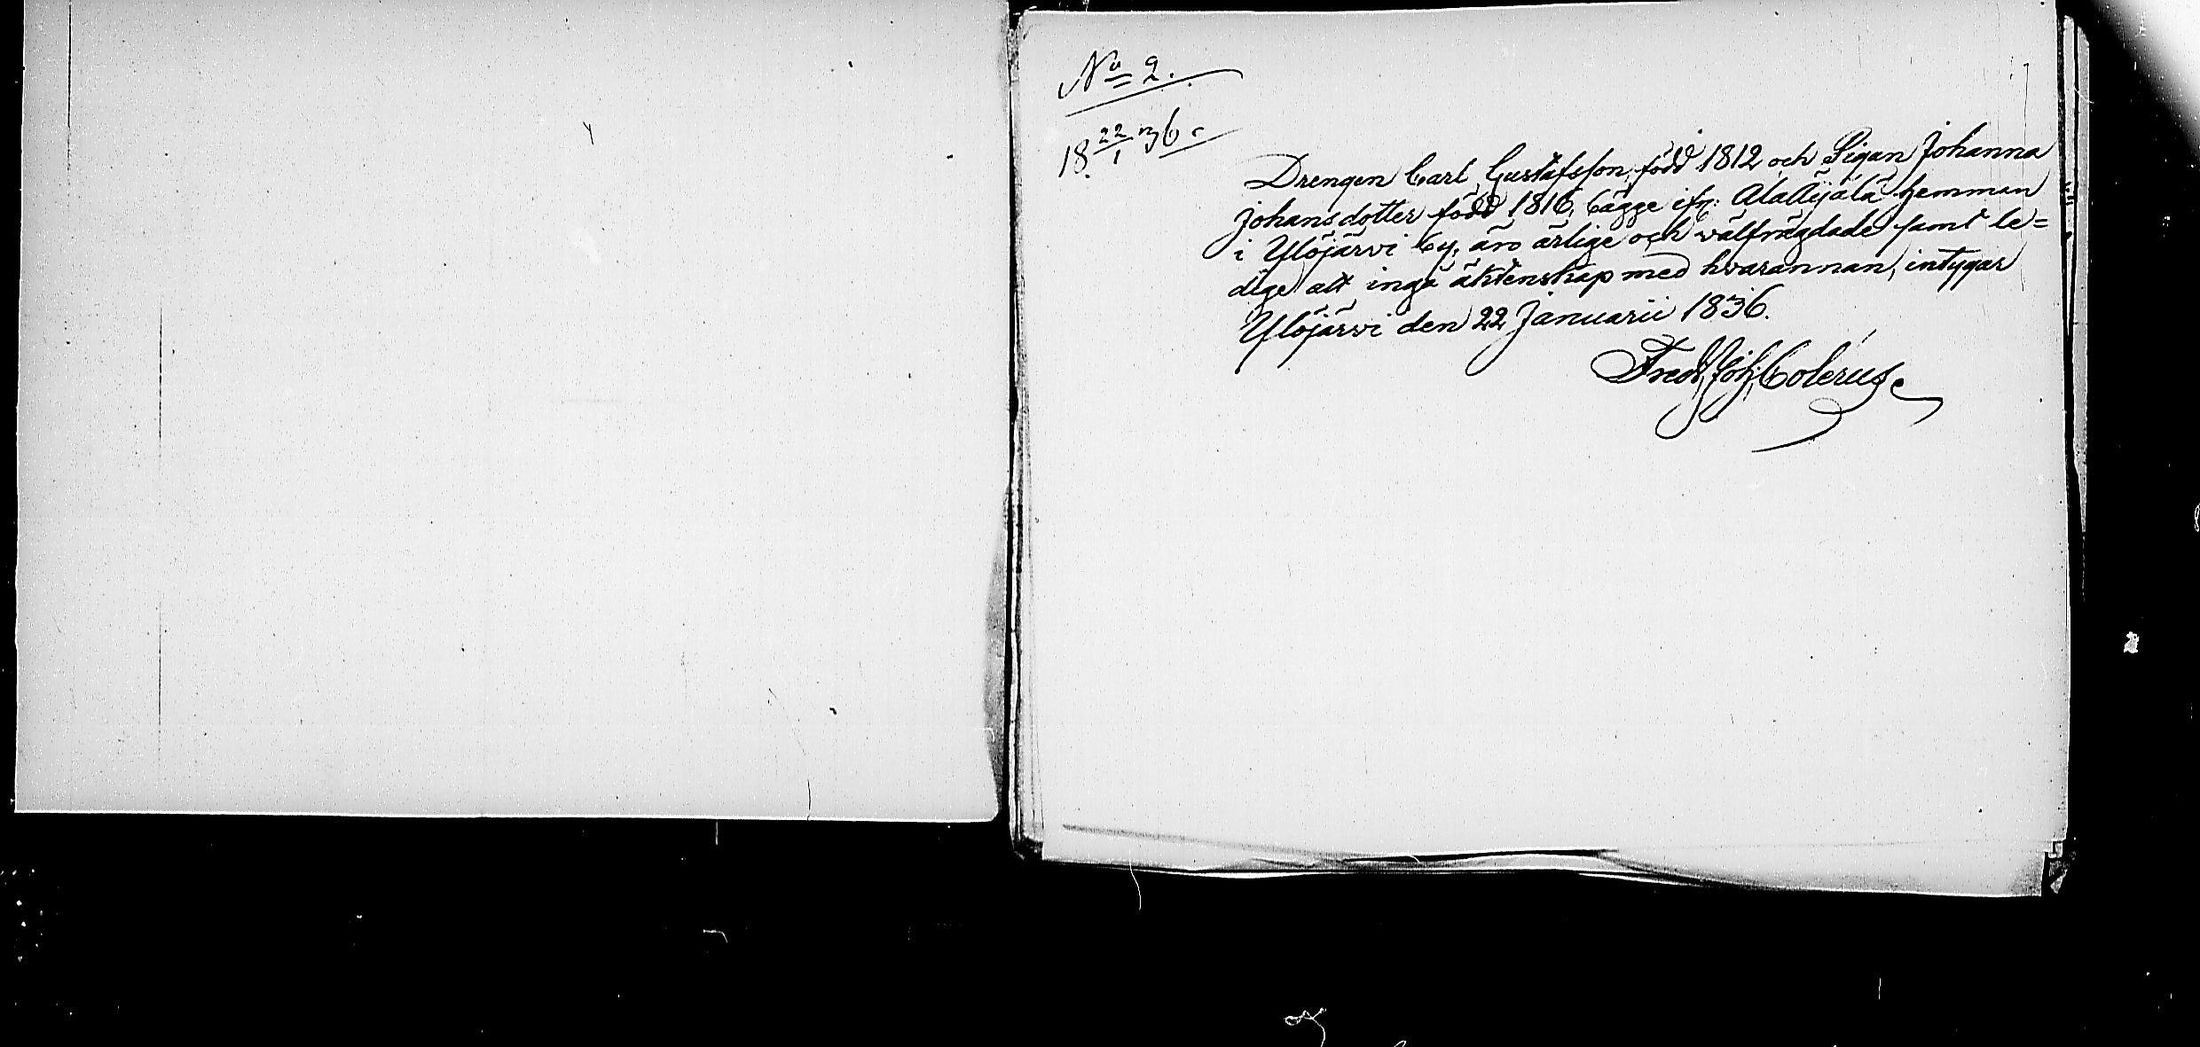 No 2.
18 22/1 36.
Drengen Carl Gustafsson, född 1812 och Pigan Johanna
Johansdotter född 1816, bägge ifr: AlaÄijälä hemman
i Ylöjärvi by, äro ärlige och välfrägdade samt le=
dige att ingå äktenskap med hvarannan, intygar
Ylöjärvi den 22 Januarii 1836.
Fredr. Joh. Colérus